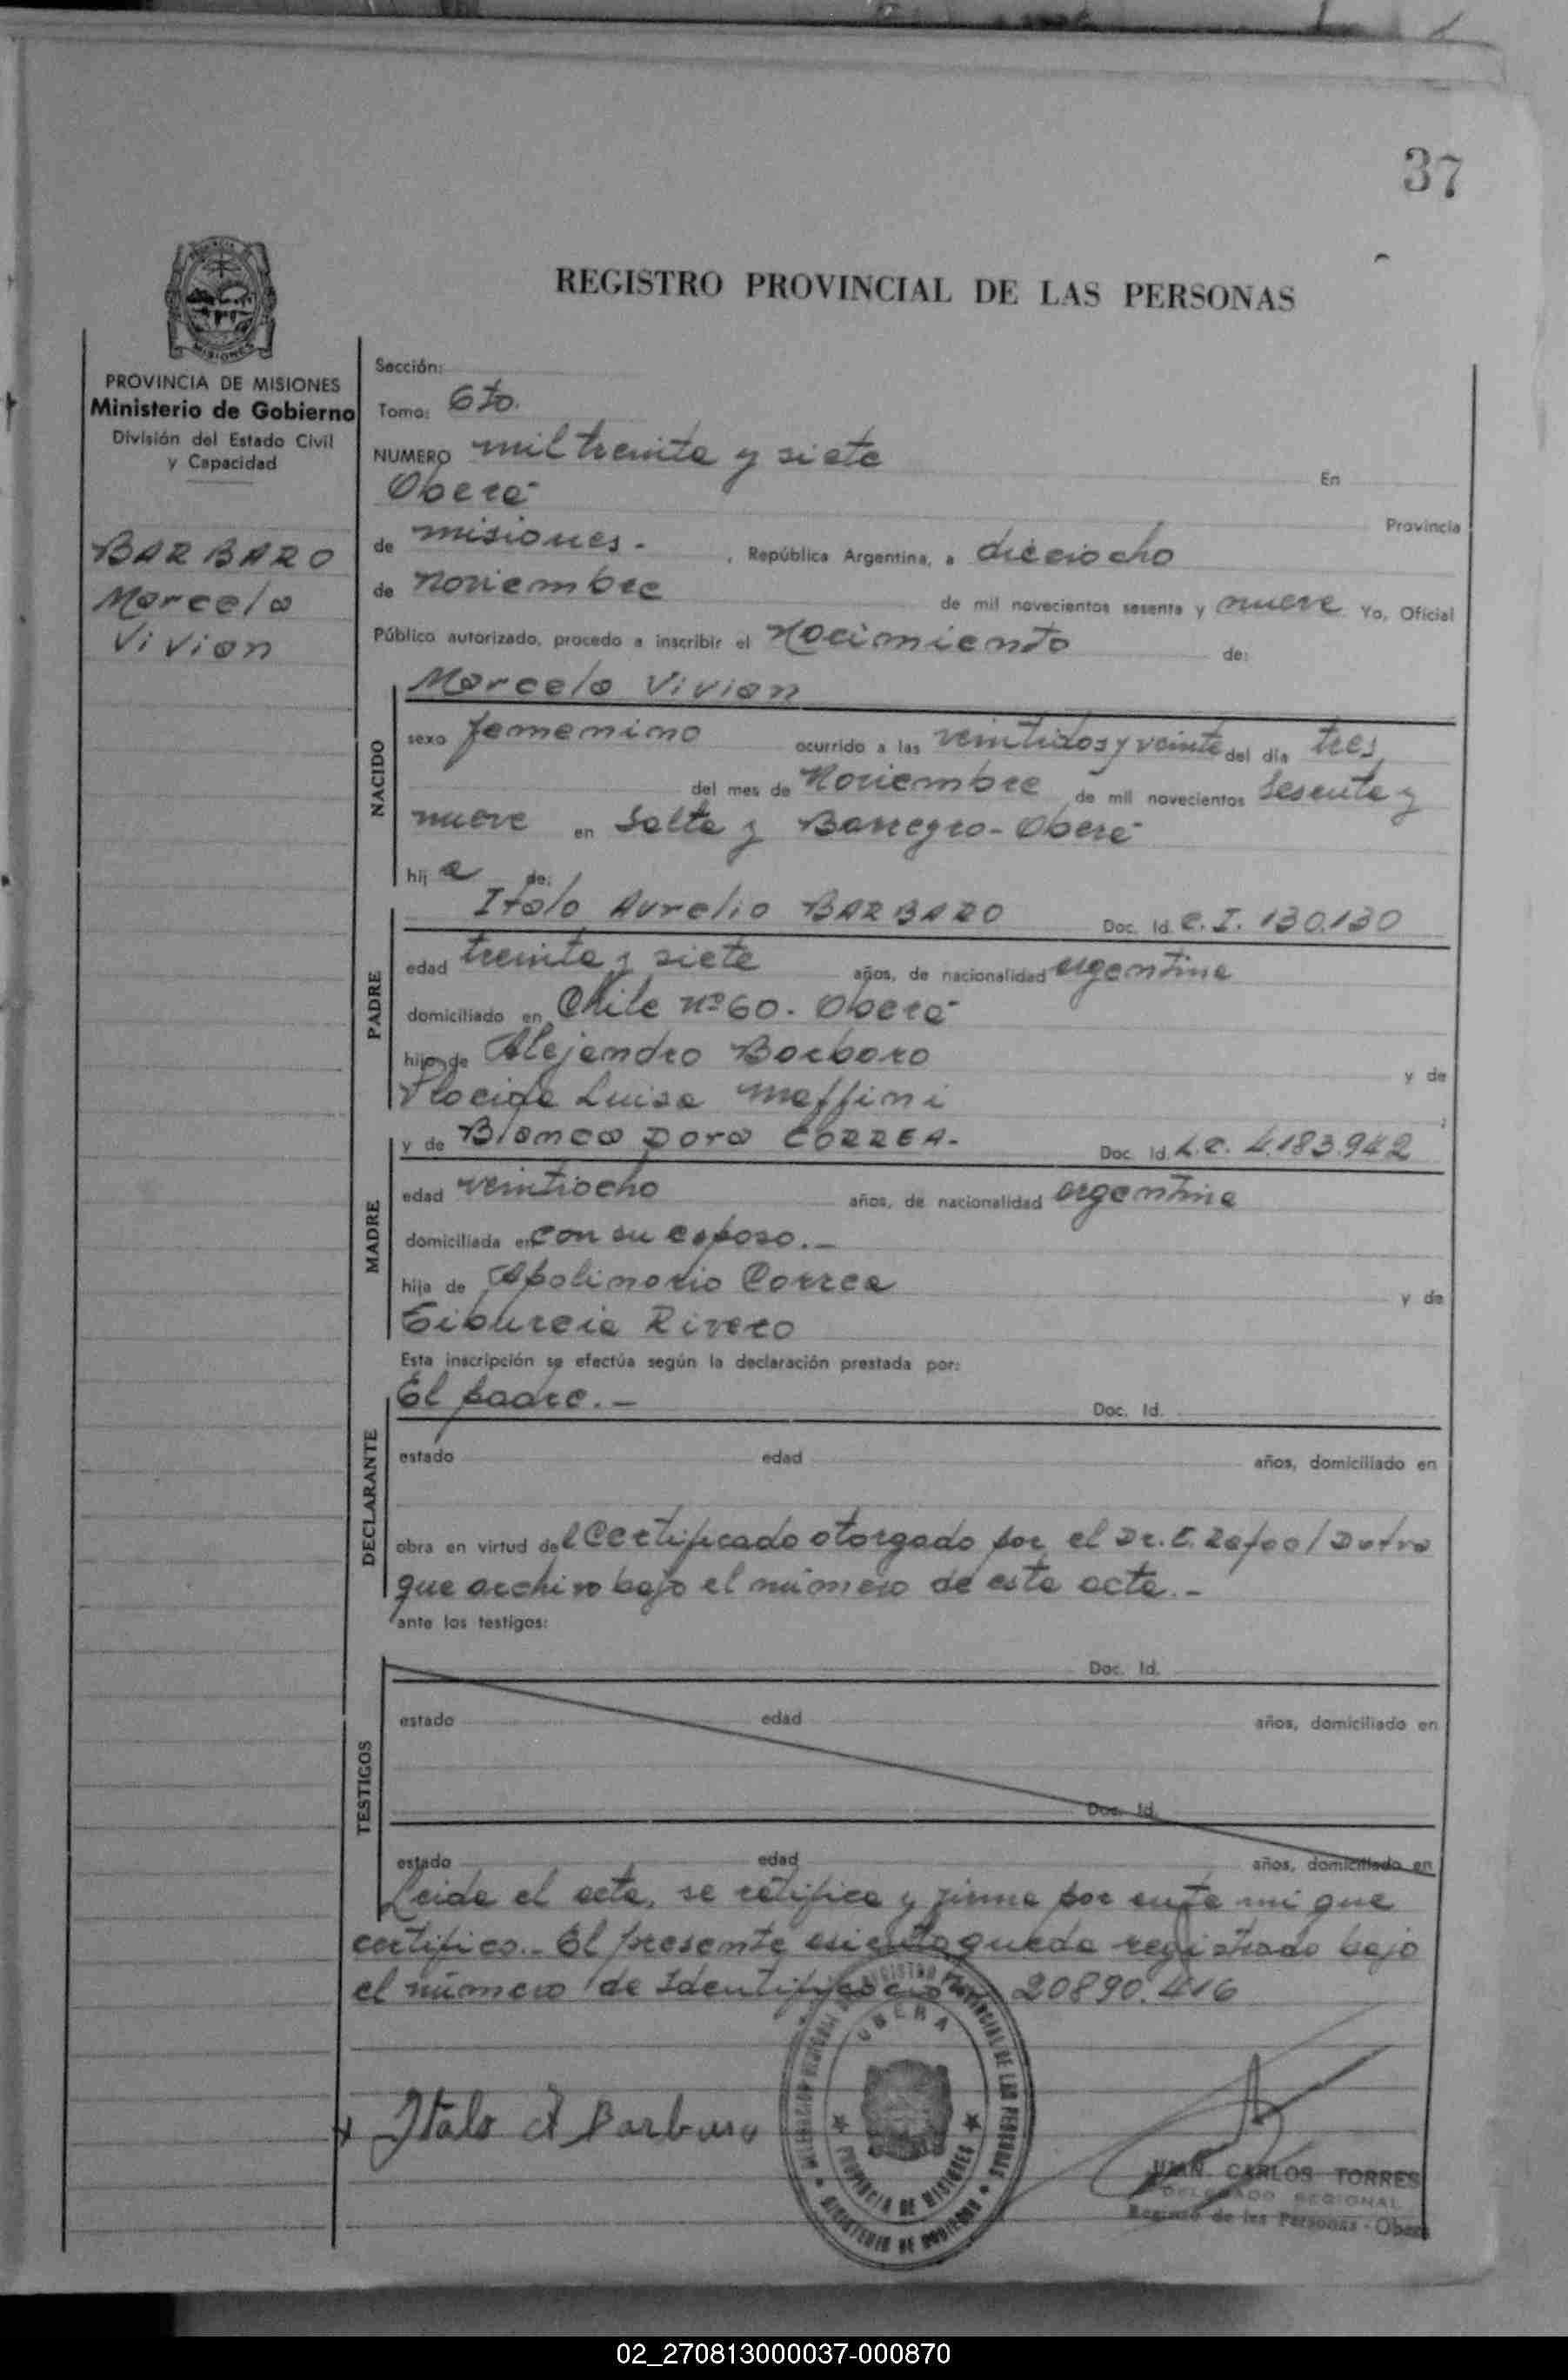 37
REGISTRO PROVINCIAL DE LAS PERSONAS
MISIONES
PROVINCIA DE MISIONES
Ministerio de Gobierno
División del Estado Civil
y Capacidad
BARBARO
Marcela
Vivian
Sección:
Tomo: 6to.
NUMERO mil treinta y siete En
Oberá Provincia
de misiones.- , República Argentina, a dieciocho
de noviembre de mil novecientos sesenta y nueve Yo, Oficial
Público autorizado, procedo a inscribir el Nacimiento de:
Marcela Vivian
NACIDO
sexo femenino ocurrido a las veintidos y veinte del día tres
del mes de Noviembre de mil novecientos sesenta y
nueve en Salta y Barreyro - Oberá
hij a de:
Italo Aurelio BARBARO Doc. Id. C. I. 130.130
PADRE
edad treinta y siete años, de nacionalidad argentina
domiciliado en Chile nº 60. Oberá
hijo de Alejandro Barbaro y de
Placida Luisa Maffini ;
y de Blanca Dora CORREA.- Doc. Id. L.C. 4.183.942
MADRE
edad veintiocho años, de nacionalidad argentina
domiciliada en con su esposo.-
hija de Apolinario Correa y de
Tiburcia Rivero
Esta inscripción se efectúa según la declaración prestada por:
El padre.- Doc. Id.
DECLARANTE
estado edad años, domiciliado en
obra en virtud del Certificado otorgado por el Dr. E. Dutra
que archivo bajo el número de esta acta.-
ante los testigos:
Doc. Id.
TESTIGOS
estado edad años, domiciliado en
Doc. Id.
estado edad años, domiciliado en
Leida el acta, se ratifica y firma por ante mi que
certifico.- El presente asiento queda registrado bajo
el número de Identificación 20890.416
Italo A Barbaro
REGISTRO PROVINCIAL DE LAS PERSONAS
OBERA
PROVINCIA DE MISIONES
MINISTERIO DE GOBIERNO
JUAN CARLOS TORRES
DELEGADO REGIONAL
Registro de las Personas - Oberá
02_270813000037-000870